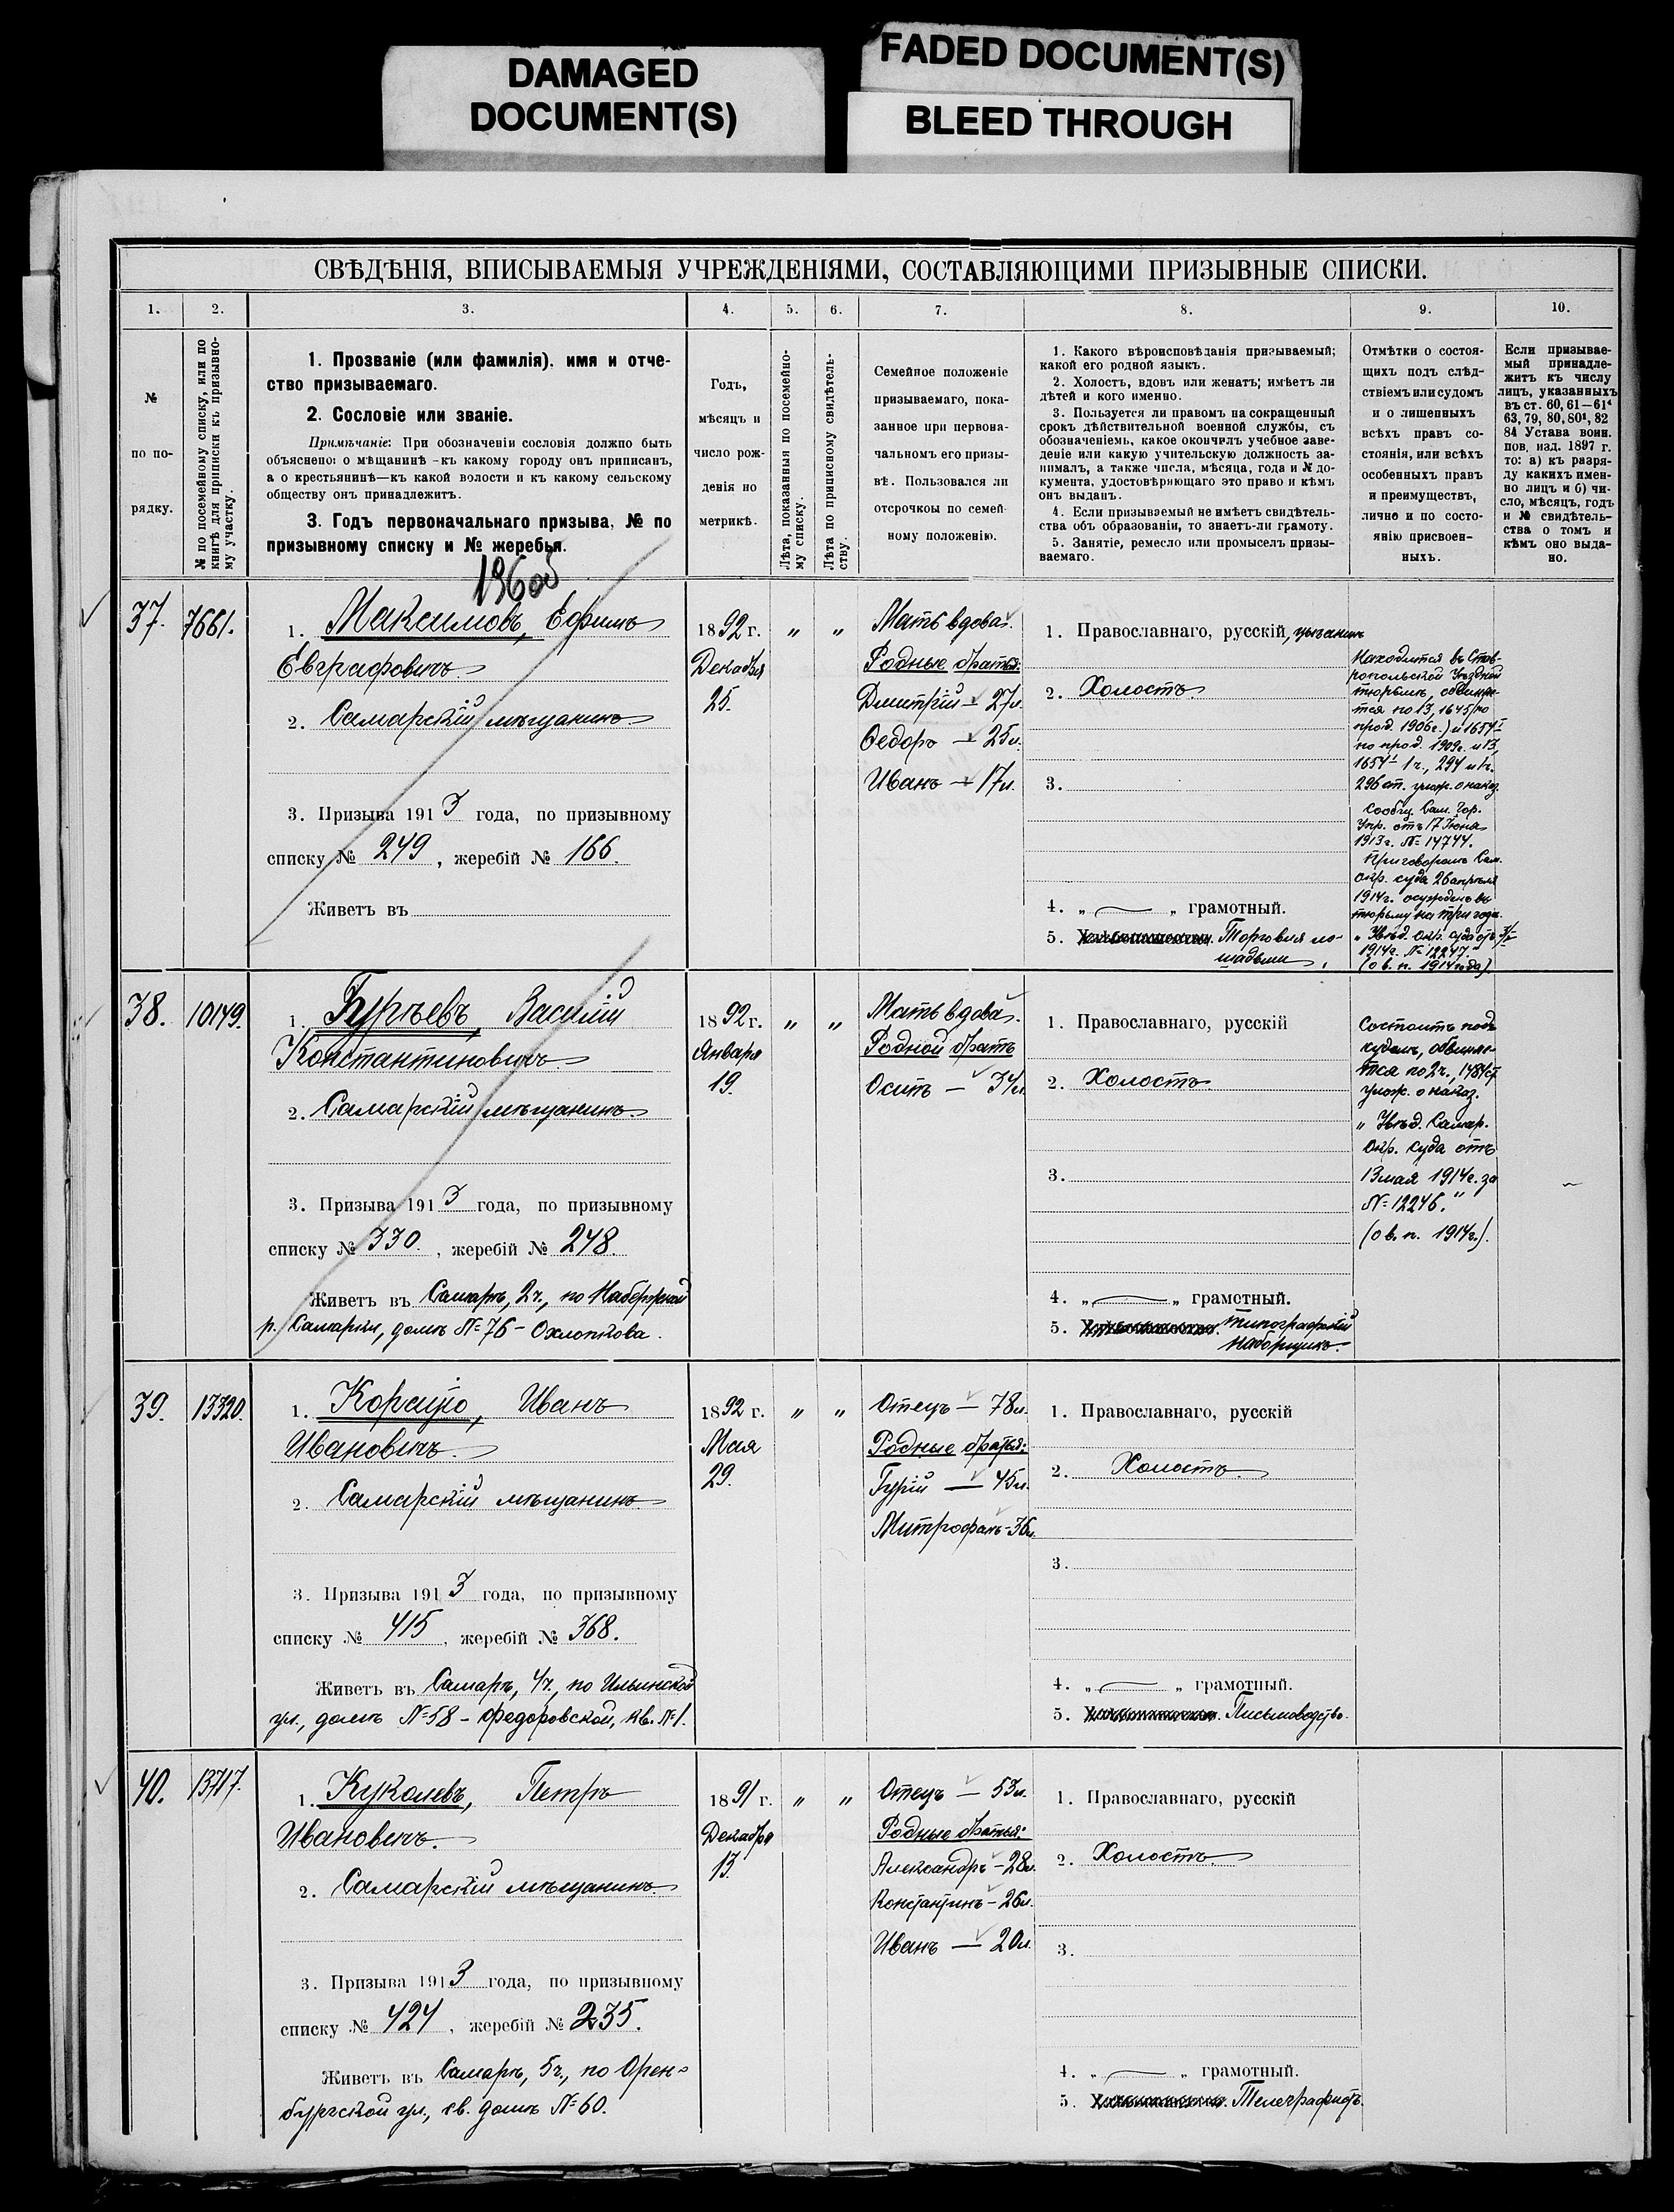 DAMAGED
DOCUMENT(S)
FADED DOCUMENT(S)
BLEED THROUGH
СВѢДѢНІЯ, ВПИСЫВАЕМЫЯ УЧРЕЖДЕНІЯМИ, СОСТАВЛЯЮЩИМИ ПРИЗЫВНЫЕ СПИСКИ.
1. 2. 3. 4. 5. 6. 7. 8. 9. 10.
№
по по-
рядку.
№ по посемейному списку, или по
книгѣ для приписки къ призывно-
му участку.
1. Прозваніе (или фамилія). имя и отче-
ство призываемаго.
2. Сословіе или званіе.
Примѣчаніе: При обозначеніи сословія должно быть
объяснено: о мѣщанинѣ -къ какому городу онъ приписанъ,
а о крестьянинѣ—къ какой волости и къ какому сельскому
обществу онъ принадлежитъ.
3. Годъ первоначальнаго призыва, № по
призывному списку и № жеребья.
Годъ,
мѣсяцъ и
число рож-
денія по
метрикѣ.
Лѣта, показанныя по посемейно-
му списку.
Лѣта по приписному свидѣтель-
ству.
Семейное положеніе
призываемаго, пока-
занное при первона-
чальномъ его призы-
вѣ. Пользовался ли
отсрочкою по семей-
ному положенію.
1. Какого вѣроисповѣданія призываемый;
какой его родной языкъ.
2. Холостъ, вдовъ или женатъ; имѣетъ ли
дѣтей и кого именно.
3. Пользуется ли правомъ на сокращенный
срокъ дѣйствительной военной службы, съ
обозначеніемъ, какое окончилъ учебное заве-
деніе или какую учительскую должность за-
нималъ, а также числа, мѣсяца, года и № до-
кумента, удостовѣряющаго это право и кѣмъ
онъ выданъ.
4. Если призываемый не имѣетъ свидѣтель-
ства объ образованіи, то знаетъ-ли грамоту.
5. Занятіе, ремесло или промыселъ призы-
ваемаго.
Отмѣтки о состоя-
щихъ подъ слѣд-
ствіемъ или судомъ
и о лишенныхъ
всѣхъ правъ со-
стоянія, или всѣхъ
особенныхъ правъ
и преимуществъ,
лично и по состо-
янію присвоен-
ныхъ.
Если призывае-
мый принадле-
житъ къ числу
лицъ, указанныхъ
въ ст. 60, 61—61⁴
63, 79, 80, 80¹, 82
84 Устава воин.
пов. изд. 1897 г.
то: а) къ разря-
ду какихъ имен-
но лицъ и б) чи-
сло, мѣсяцъ, годъ
и № свидѣтель-
ства о томъ и
кѣмъ оно выда-
но.
37. 7661.
1. Максимовъ, Ефимъ
Евграфовичъ
2. Самарскій мѣщанинъ
3. Призыва 1913 года, по призывному
списку № 249, жеребій № 166.
Живетъ въ
1892 г.
Декабря
25.
„ „
Мать вдова.
Родные братья:
Дмитрій — 27 л.
Ѳедоръ — 25 л.
Иванъ — 17 л.
1. Православнаго, русскій, цыганинъ
2. Холостъ
3.
4. „ — „ грамотный.
5. Торговля ло-
шадьми
Находится въ Став-
ропольской Уѣздной
тюрьмѣ, обвиняе-
тся по 13, 1645 (по
прод. 1906 г.) и 1654¹
по прод. 1909 г. и 13,
1654¹ 1 ч., 294 и 1 ч.
296 ст. улож. о наказ.
Сообщ. Сам. Гор.
Упр. отъ 17 Іюня
1913 г. № 14744.
Приговоромъ Сам.
окр. суда 26 апрѣля
1914 г. осужденъ въ
тюрьму на три года.
„ Увѣд. Окр. суда отъ
1914 г. № 12247."
(о в. п. 1914 года)
38. 10149.
1. Гурьевъ, Василій
Константиновичъ
2. Самарскій мѣщанинъ
3. Призыва 1913 года, по призывному
списку № 330., жеребій № 248.
Живетъ въ Самарѣ, 2 ч., по Набережной
р. Самарки, домъ № 76 - Охлопкова.
1892 г.
Января
19.
„ „
Мать вдова.
Родной братъ
Осипъ — 34 л.
1. Православнаго, русскій
2. Холостъ
3.
4. „ — „ грамотный.
5. типографскій
наборщикъ.
Состоитъ подъ
судомъ, обвиняе-
тся по 2 ч., 1484 ст
улож. о наказ.
„ Увѣд. Самар.
Окр. суда отъ
13 мая 1914 г. за
№ 12246."
(о в. п. 1914 г.).
39. 13320.
1. Корсупо, Иванъ
Ивановичъ
2. Самарскій мѣщанинъ
3. Призыва 1913 года, по призывному
списку № 415, жеребій № 368.
Живетъ въ Самарѣ, 4 ч., по Ильинской
ул., домъ № 58 - Федоровской, кв. № 1.
1892 г.
Мая
29.
„ „
Отецъ — 78 л.
Родные братья:
Гурій — 45 л.
Митрофанъ - 36 л.
1. Православнаго, русскій
2. Холостъ
3.
4. „ — „ грамотный.
5. Письмоводство.
40. 13717.
1. Куколевъ, Петръ
Ивановичъ
2. Самарскій мѣщанинъ
3. Призыва 1913 года, по призывному
списку № 424, жеребій № 235.
Живетъ въ Самарѣ, 5 ч., по Орен-
бургской ул., св. домъ № 60.
1891 г.
Декабря
13.
„ „
Отецъ — 53 л.
Родные братья:
Александръ - 28 л.
Константинъ - 26 л.
Иванъ — 20 л.
1. Православнаго, русскій
2. Холостъ
3.
4. „ — „ грамотный.
5. Телеграфистъ.